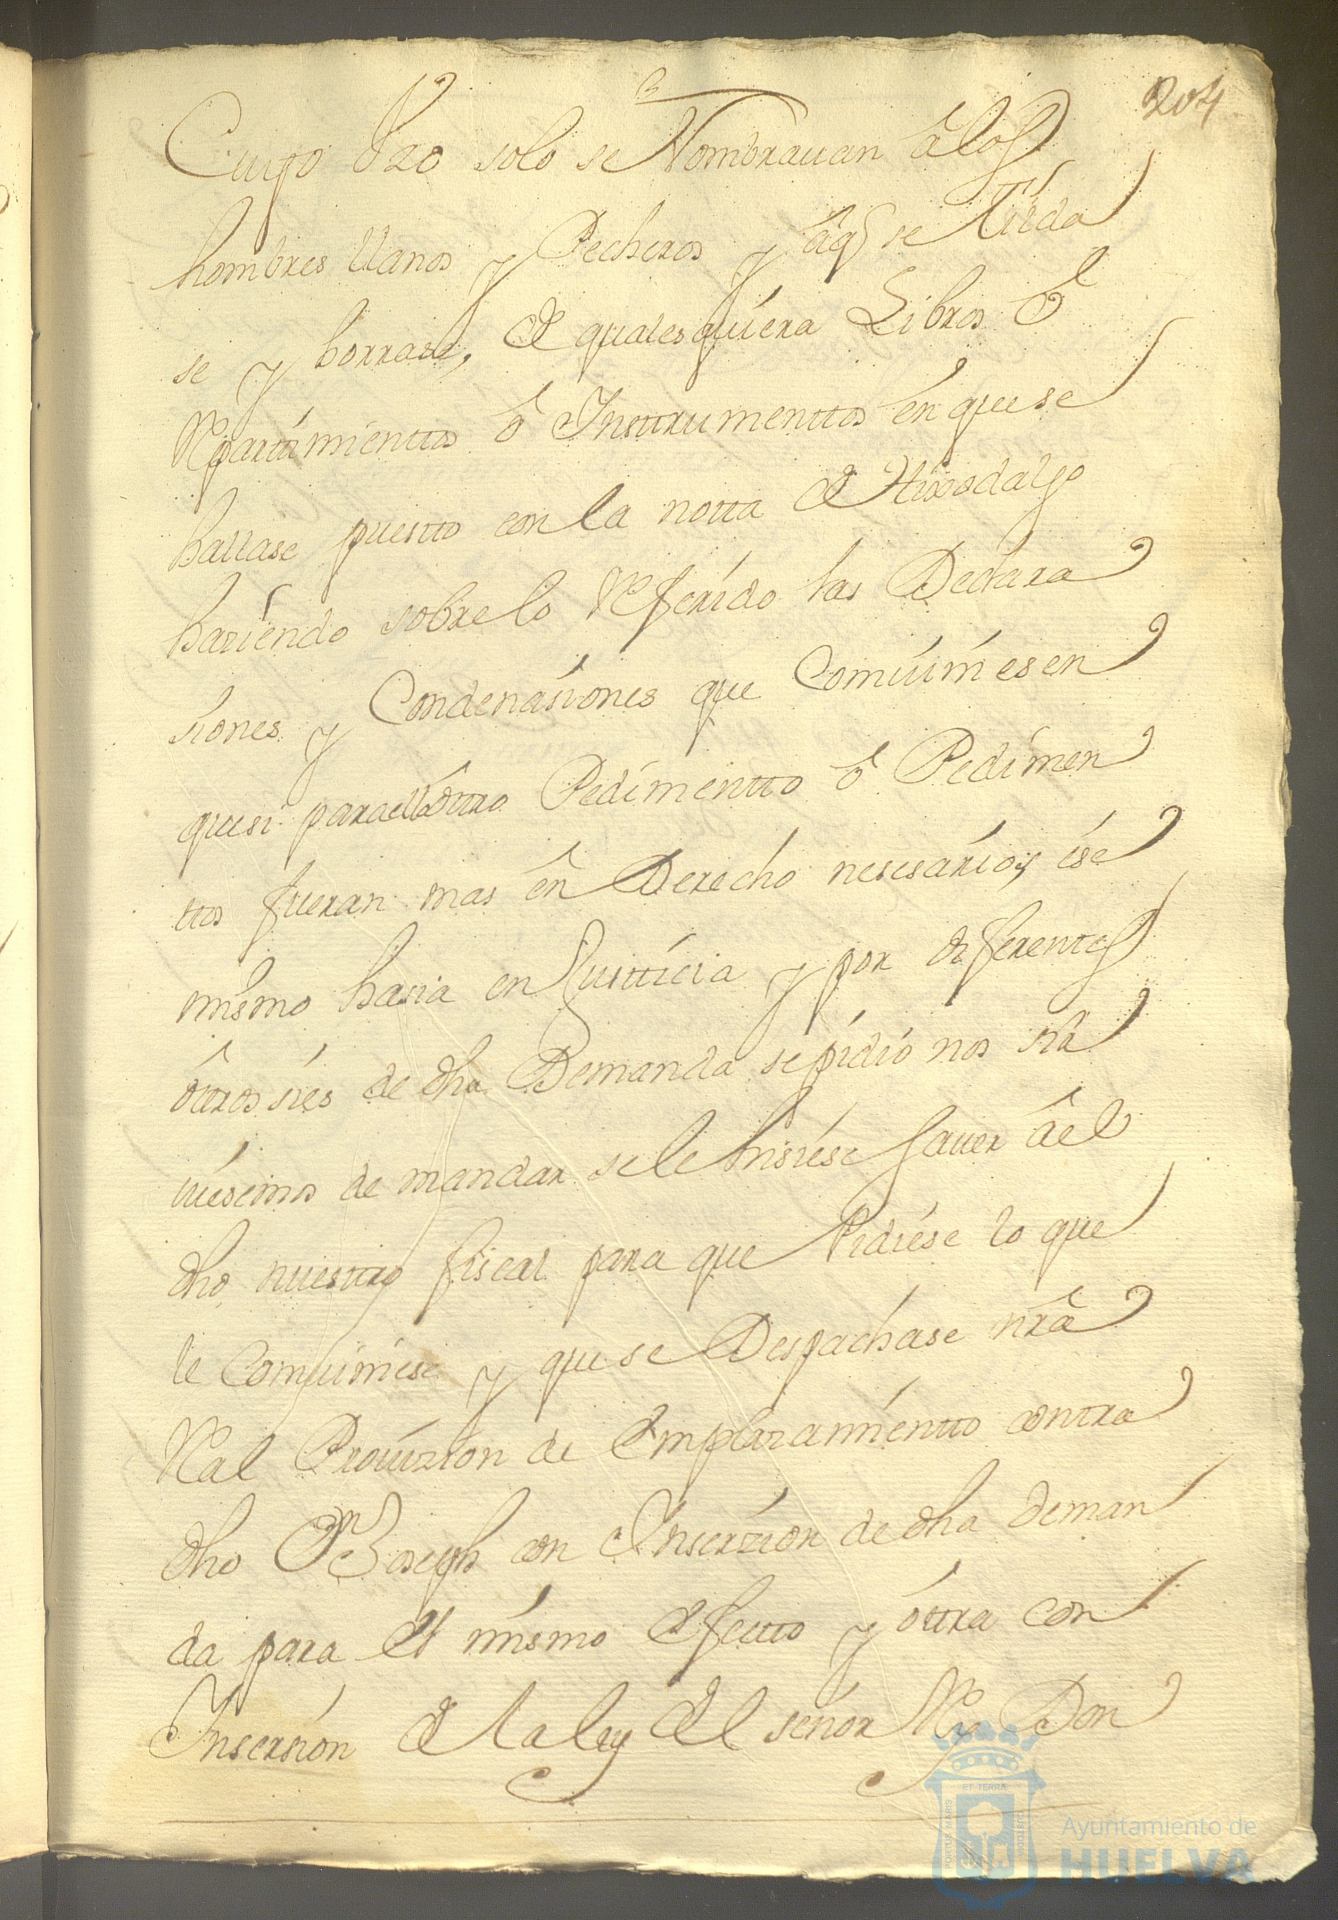 204
Cuyo Uzo solo se Nombrauan â los
hombres llanos y Pecheros y âq se tilda
se y borrase, de qualesquiera Libros ô
Repartimienttos ô Insttrumenttos ên que se
hallase puestto con la notta de Hixodalgo
haziendo sobre lo Referido las Declara
siones y Condenasiones que Combiniesen
que si para ello ôttro Pedimentto ô Pedimen
ttos fueran mas ên Derecho nesesarios, ese
mismo hasia en Justticia y por diferentes
ôttros sies de dha Demanda se pidio nos sir
uiesemos de mandar se le hisiese sauer âel
dho nuesttro fiscal para que Pidiese lo que
le Combiniese y que se Despachase nrâ
Real Prouizion de Emplazamientto contra
dho Dn Joseph con Inserzion de dha deman
da para el mismo efectto y ôttra con
Insersion de la ley del señor Rey Don
PORTUS MARIS ET TERRAE CUSTODIA
Ayuntamiento de
HUELVA